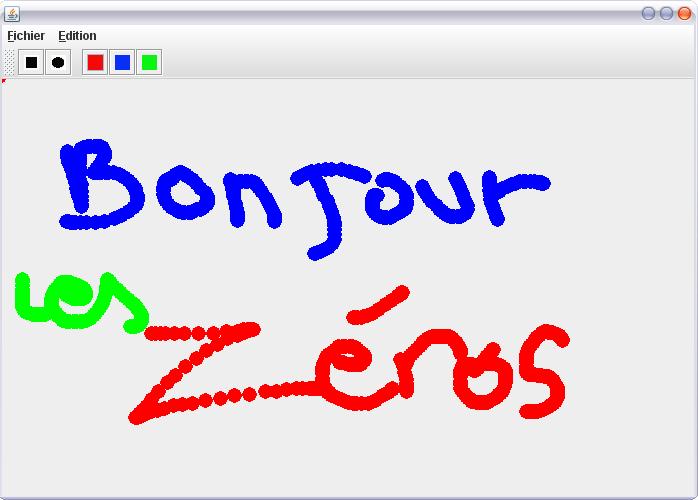 Fichier Edition
Bonjour
les
Zéros